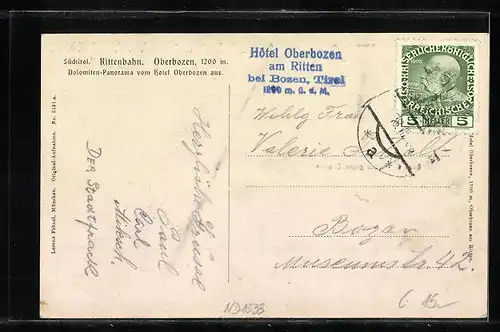 Südtirol. Rittenbahn. Oberbozen, 1200 m.
Dolomiten-Panorama vom Hotel Oberbozen aus.
Hôtel Oberbozen
am Ritten
bei Bozen, Tirol
1200 m. ü. d. M.
5 HELLER 5
Wohlg Frau
Valerie
Bozen
Museumstr. 42.
Herzlichste Grüsse
Paul
Carl
DER Stadtfrack
Lorenz Fränzl, München. Original-Aufnahme. No. 5121 a.
Hotel Oberbozen, 1200 m, Oberbozen am Ritten.
a
ND1533
6 15.-